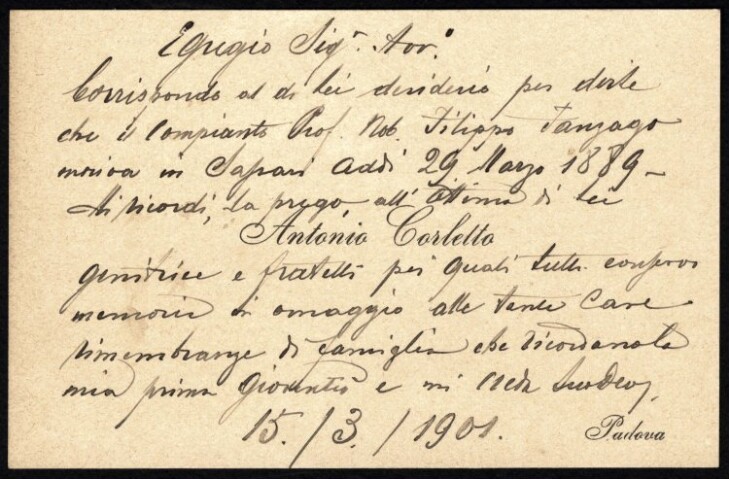 Egregio Sigr. Avv.o
Corrispondo al di lei desiderio per dirle
che il compianto Prof. Nob. Filippo Fanzago
moriva in Sassari addì 29 Marzo 1889 –
Mi ricordi, la prego, all'ottima di lei
Antonio Corletto
genitrice e fratelli pei quali tutti conservo
memoria in omaggio alle tante care
rimembranze di famiglia che ricordano la
mia prima gioventù e mi creda
15. / 3. / 1901.
Padova